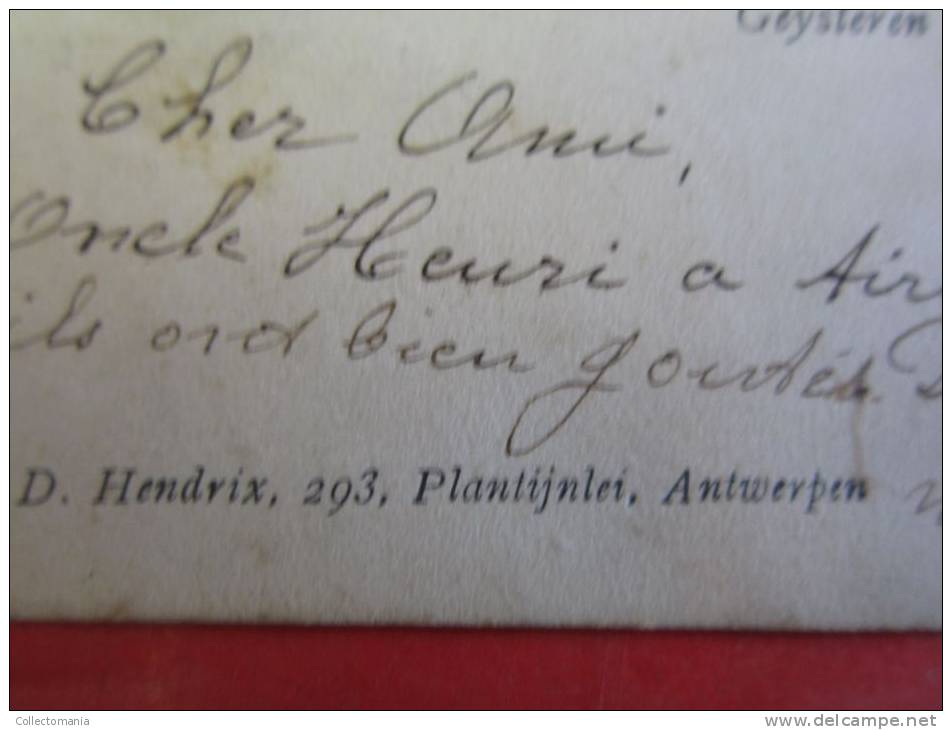 Geysteren
Cher Ami,
Oncle Henri a
ils ont bien goutés
D. Hendrix, 293, Plantijnlei, Antwerpen
Collectomania
www.delcampe.net